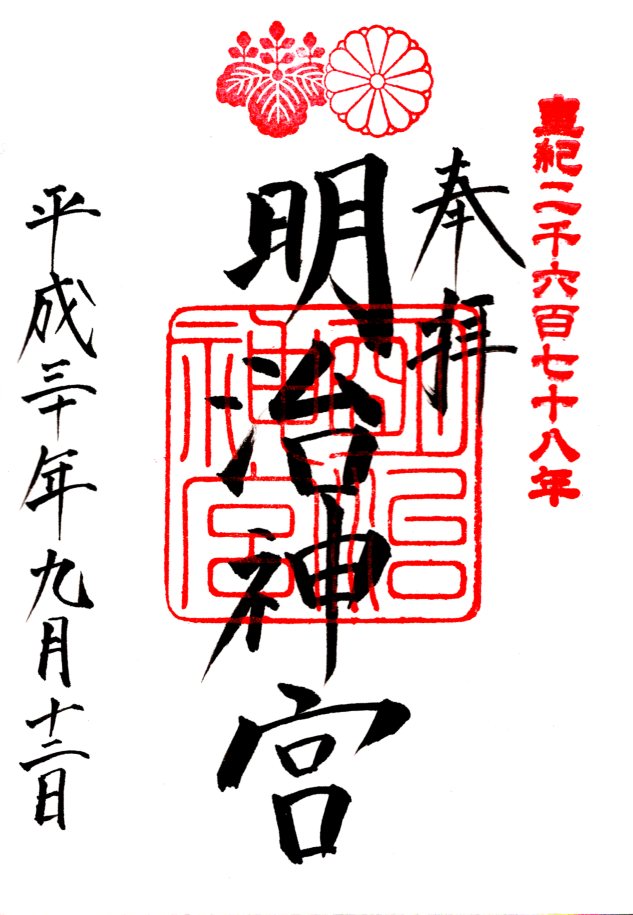 皇紀二千六百七十八年
奉拝
明治神宮
明治神宮
平成三十年九月十二日